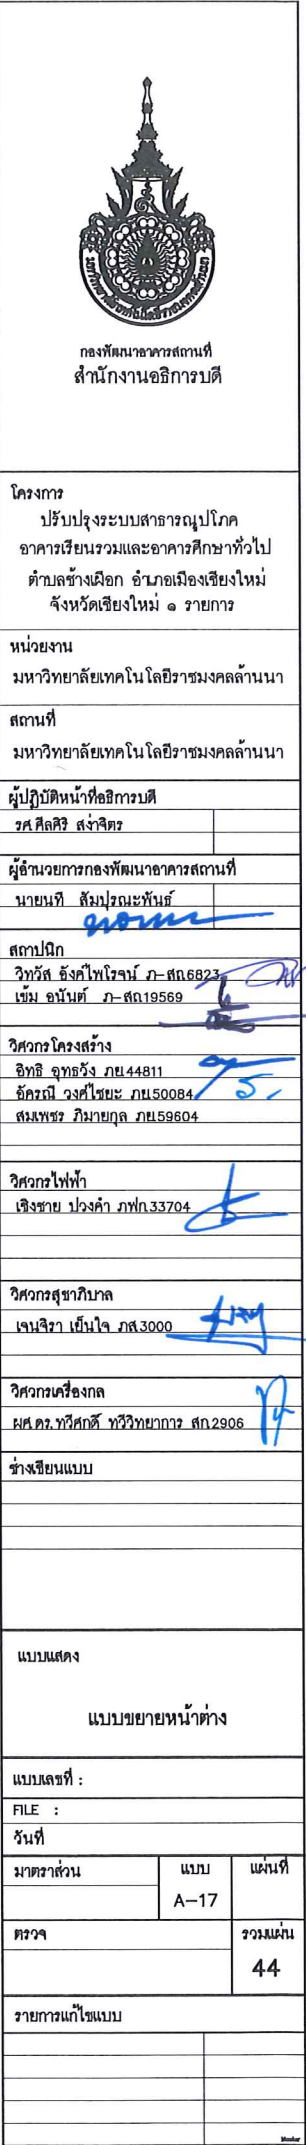 มหาวิทยาลัยเทคโนโลยีราชมงคลล้านนา
กองพัฒนาอาคารสถานที่
สำนักงานอธิการบดี
โครงการ
ปรับปรุงระบบสาธารณูปโภค
อาคารเรียนรวมและอาคารศึกษาทั่วไป
ตำบลช้างเผือก อำเภอเมืองเชียงใหม่
จังหวัดเชียงใหม่ ๑ รายการ
หน่วยงาน
มหาวิทยาลัยเทคโนโลยีราชมงคลล้านนา
สถานที่
มหาวิทยาลัยเทคโนโลยีราชมงคลล้านนา
ผู้ปฏิบัติหน้าที่อธิการบดี
รศ.ศีลศิริ สง่าจิตร
ผู้อำนวยการกองพัฒนาอาคารสถานที่
นายนที สัมปุรณะพันธ์
สถาปนิก
วิทวัส อังค์ไพโรจน์ ภ-สถ6823
เข้ม อนันต์ ภ-สถ19569
วิศวกรโครงสร้าง
อิทธิ อุทธวัง ภย.44811
อัครณี วงศ์ไชยะ ภย.50084
สมเพชร ภิมายกุล ภย.59604
วิศวกรไฟฟ้า
เชิงชาย ปวงคำ ภฟก.33704
วิศวกรสุขาภิบาล
เจนจิรา เย็นใจ ภส.3000
วิศวกรเครื่องกล
ผศ.ดร.ทวีศักดิ์ ทวีวิทยาการ สก.2906
ช่างเขียนแบบ
แบบแสดง
แบบขยายหน้าต่าง
แบบเลขที่ :
FILE :
วันที่
มาตราส่วน แบบ แผ่นที่
A-17
ตรวจ รวมแผ่น
44
รายการแก้ไขแบบ